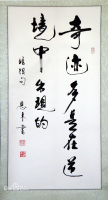 奇迹多是在逆
境中出现的
培根句